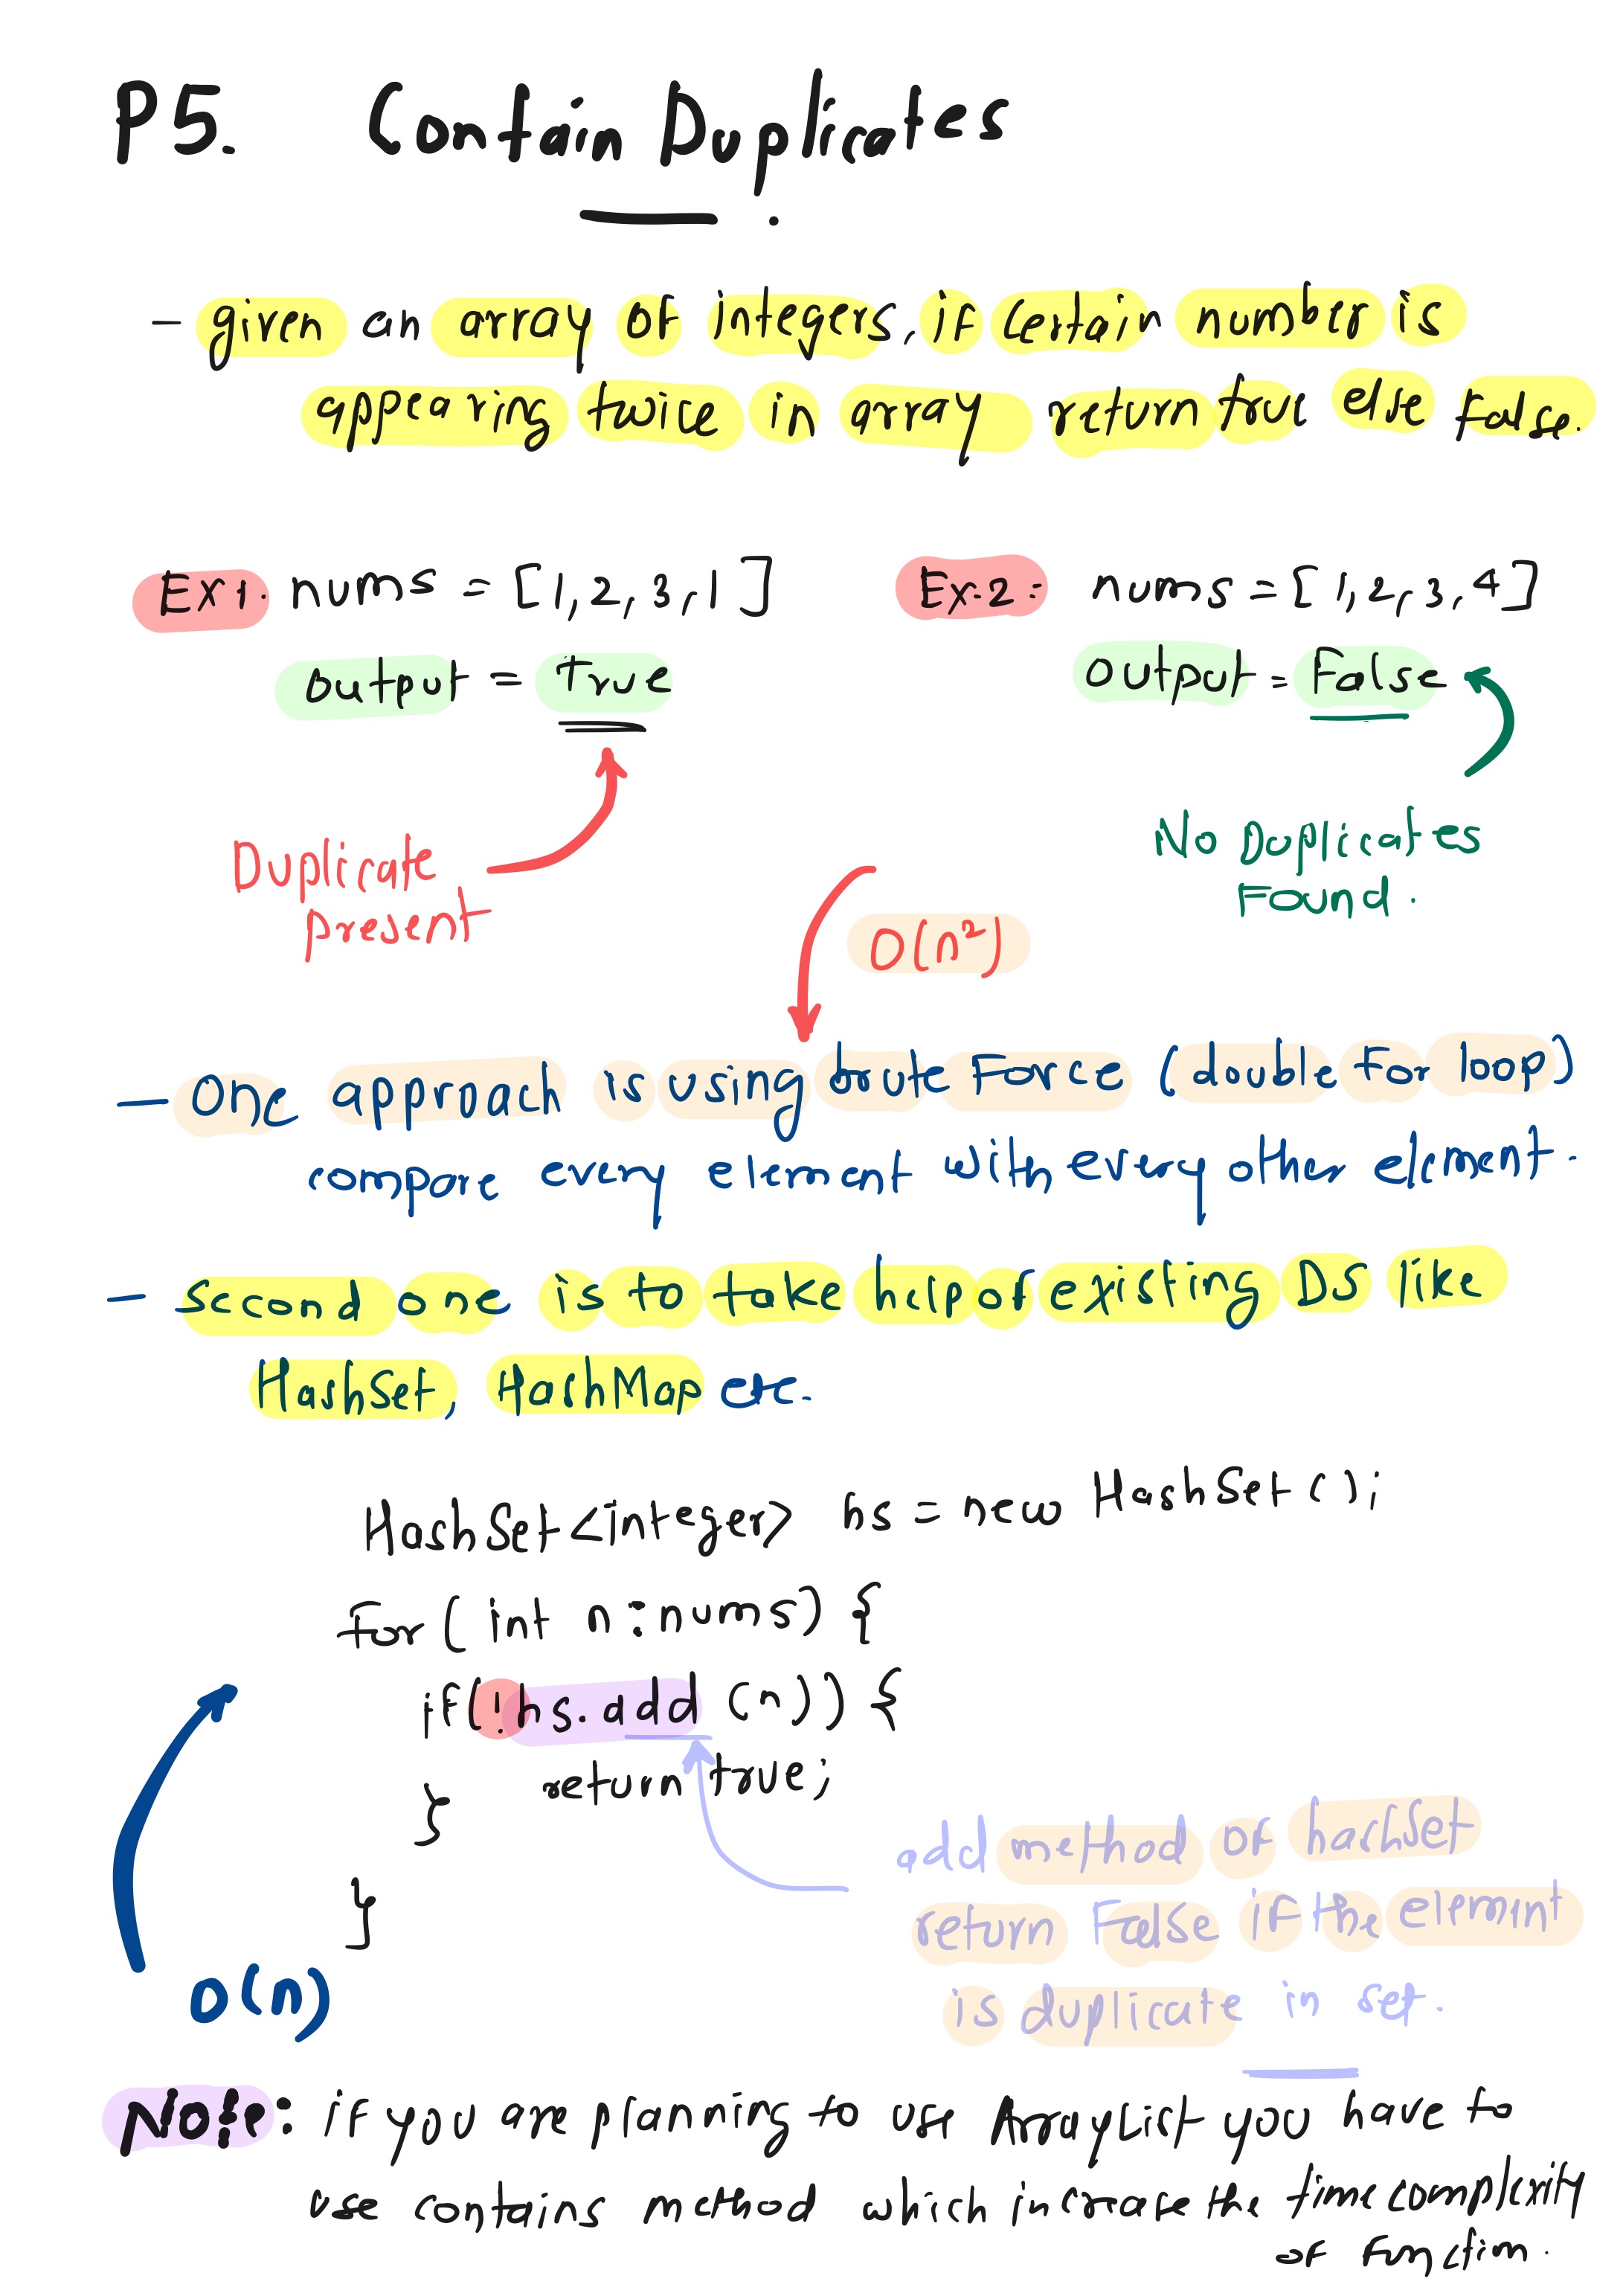 P5. Contain Duplicates
- given an array of integers, if certain number is
appearing twice in array return true else false.
Ex1. nums = [1,2,3,1]
output = True
Duplicate
present
Ex-2- nums = [1,2,3,4]
output = False
No Duplicates
Found.
O(n²)
- One approach is using brute Force (double for loop)
compare every element with every other element.
- second one is to take help of existing DS like
HashSet, HashMap etc.
HashSet<integer> hs = new HashSet();
for( int n : nums) {
if(!hs.add (n)) {
return true;
}
}
O(n)
add method of hashSet
return False if the element
is duplicate in set.
Note: if you are planning to use ArrayList you have to
use contains method which increase the time complexity
of function.